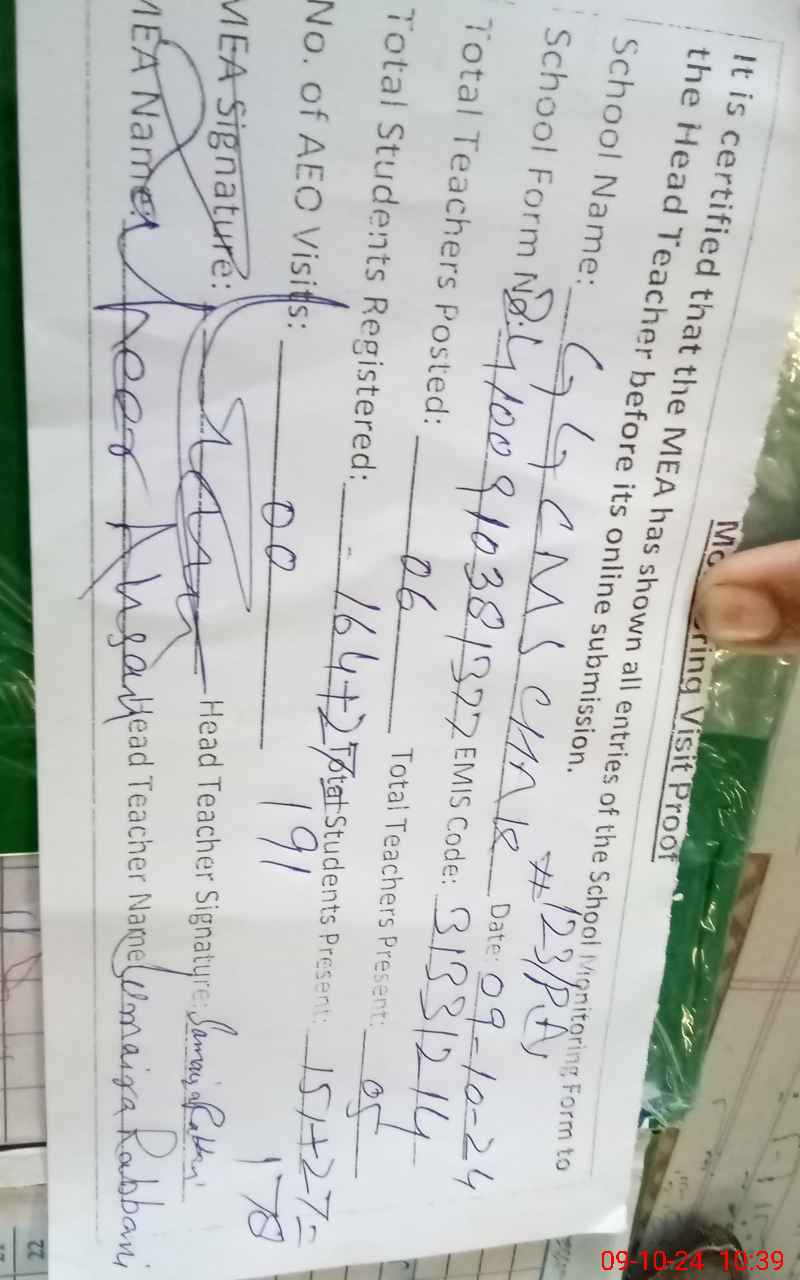 Monitoring Visit Proof
It is certified that the MEA has shown all entries of the School Monitoring Form to
the Head Teacher before its online submission.
School Name: GGCMS CHAK #123/P(A)
School Form No: 4100910381377 Date: 09-10-24
Total Teachers Posted: 06 EMIS Code: 31331214
Total Teachers Present: 05
Total Students Registered: 164+27 Total Students Present: 151+27=
191 178
No. of AEO Visits: 00
MEA Signature: Head Teacher Signature:
MEA Name: Head Teacher Name: Rabbani
22
09-10-24 10:39